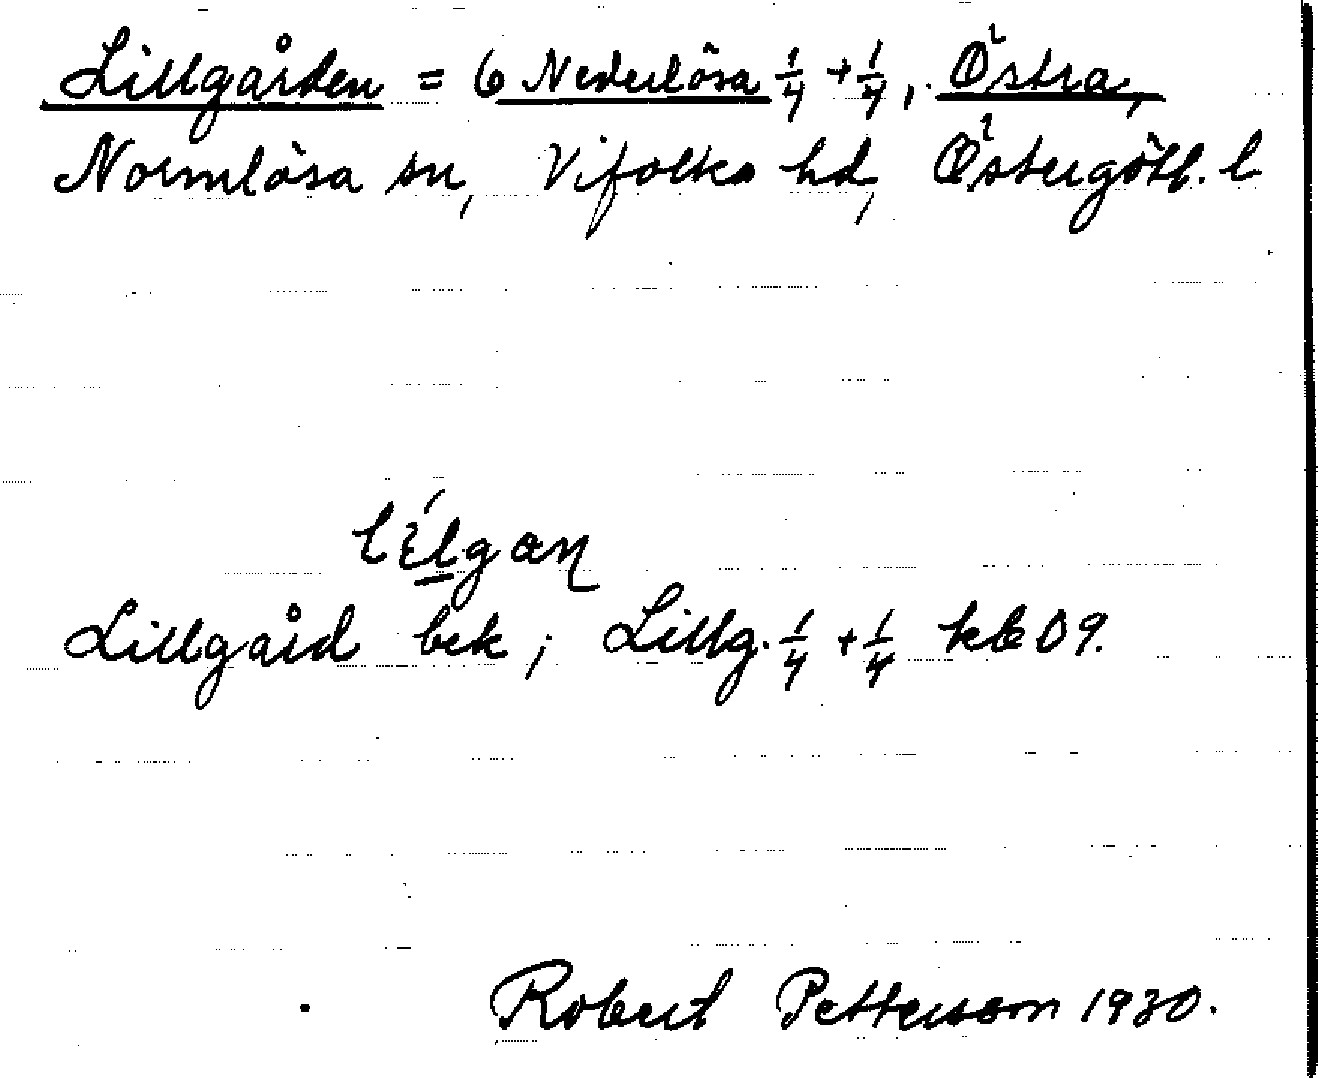 Lillgården = 6 Nederlösa 1/4 + 1/4, Östra,
Normlösa sn, Vifolka hd, Östergötl. l
Lillgård bek; Lillg. 1/4 + 1/4 kb 09.
Robert Petterson 1930.